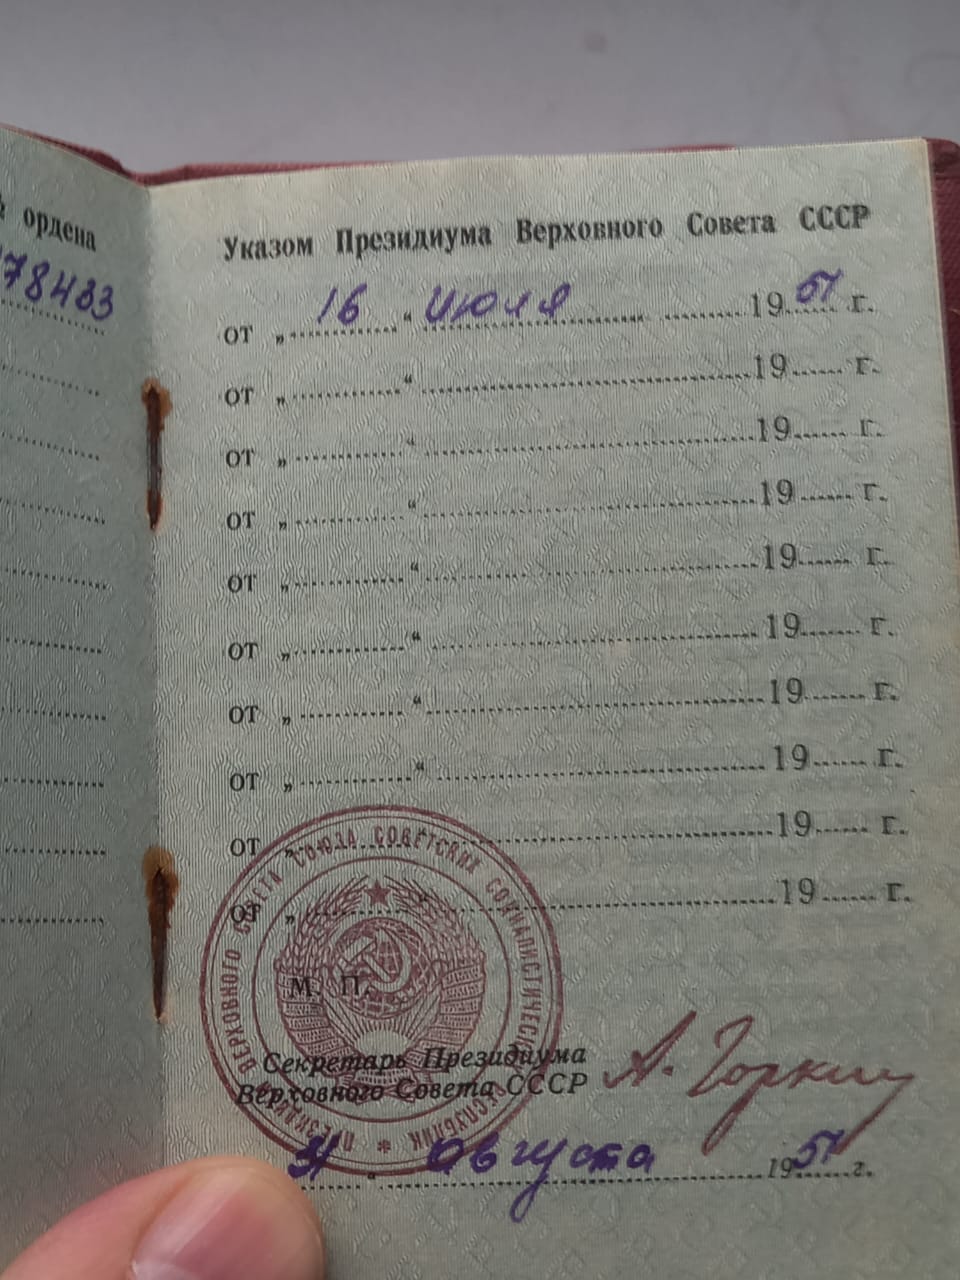 ордена
78433
Указом Президиума Верховного Совета СССР
от „ 16 “ июля 1951 г.
от „ “ 19 г.
от „ “ 19 г.
от „ “ 19 г.
от „ “ 19 г.
от „ “ 19 г.
от „ “ 19 г.
от „ “ 19 г.
от „ “ 19 г.
от „ “ 19 г.
ВЕРХОВНОГО СОВЕТА СОЮЗА СОВЕТСКИХ СОЦИАЛИСТИЧЕСКИХ РЕСПУБЛИК * ПРЕЗИДИУМ
М. П.
Секретарь Президиума
Верховного Совета СССР А. Горкин
31 “ августа 1951 г.